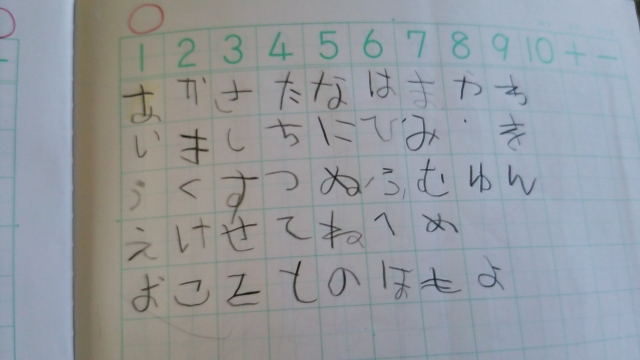 1 2 3 4 5 6 7 8 9 10 + −
あ か さ た な は ま や ち
い ま し ち に ひ み き
う く す つ ぬ ふ む ゆ ん
え け せ て ね へ め
お こ そ と の ほ も よ